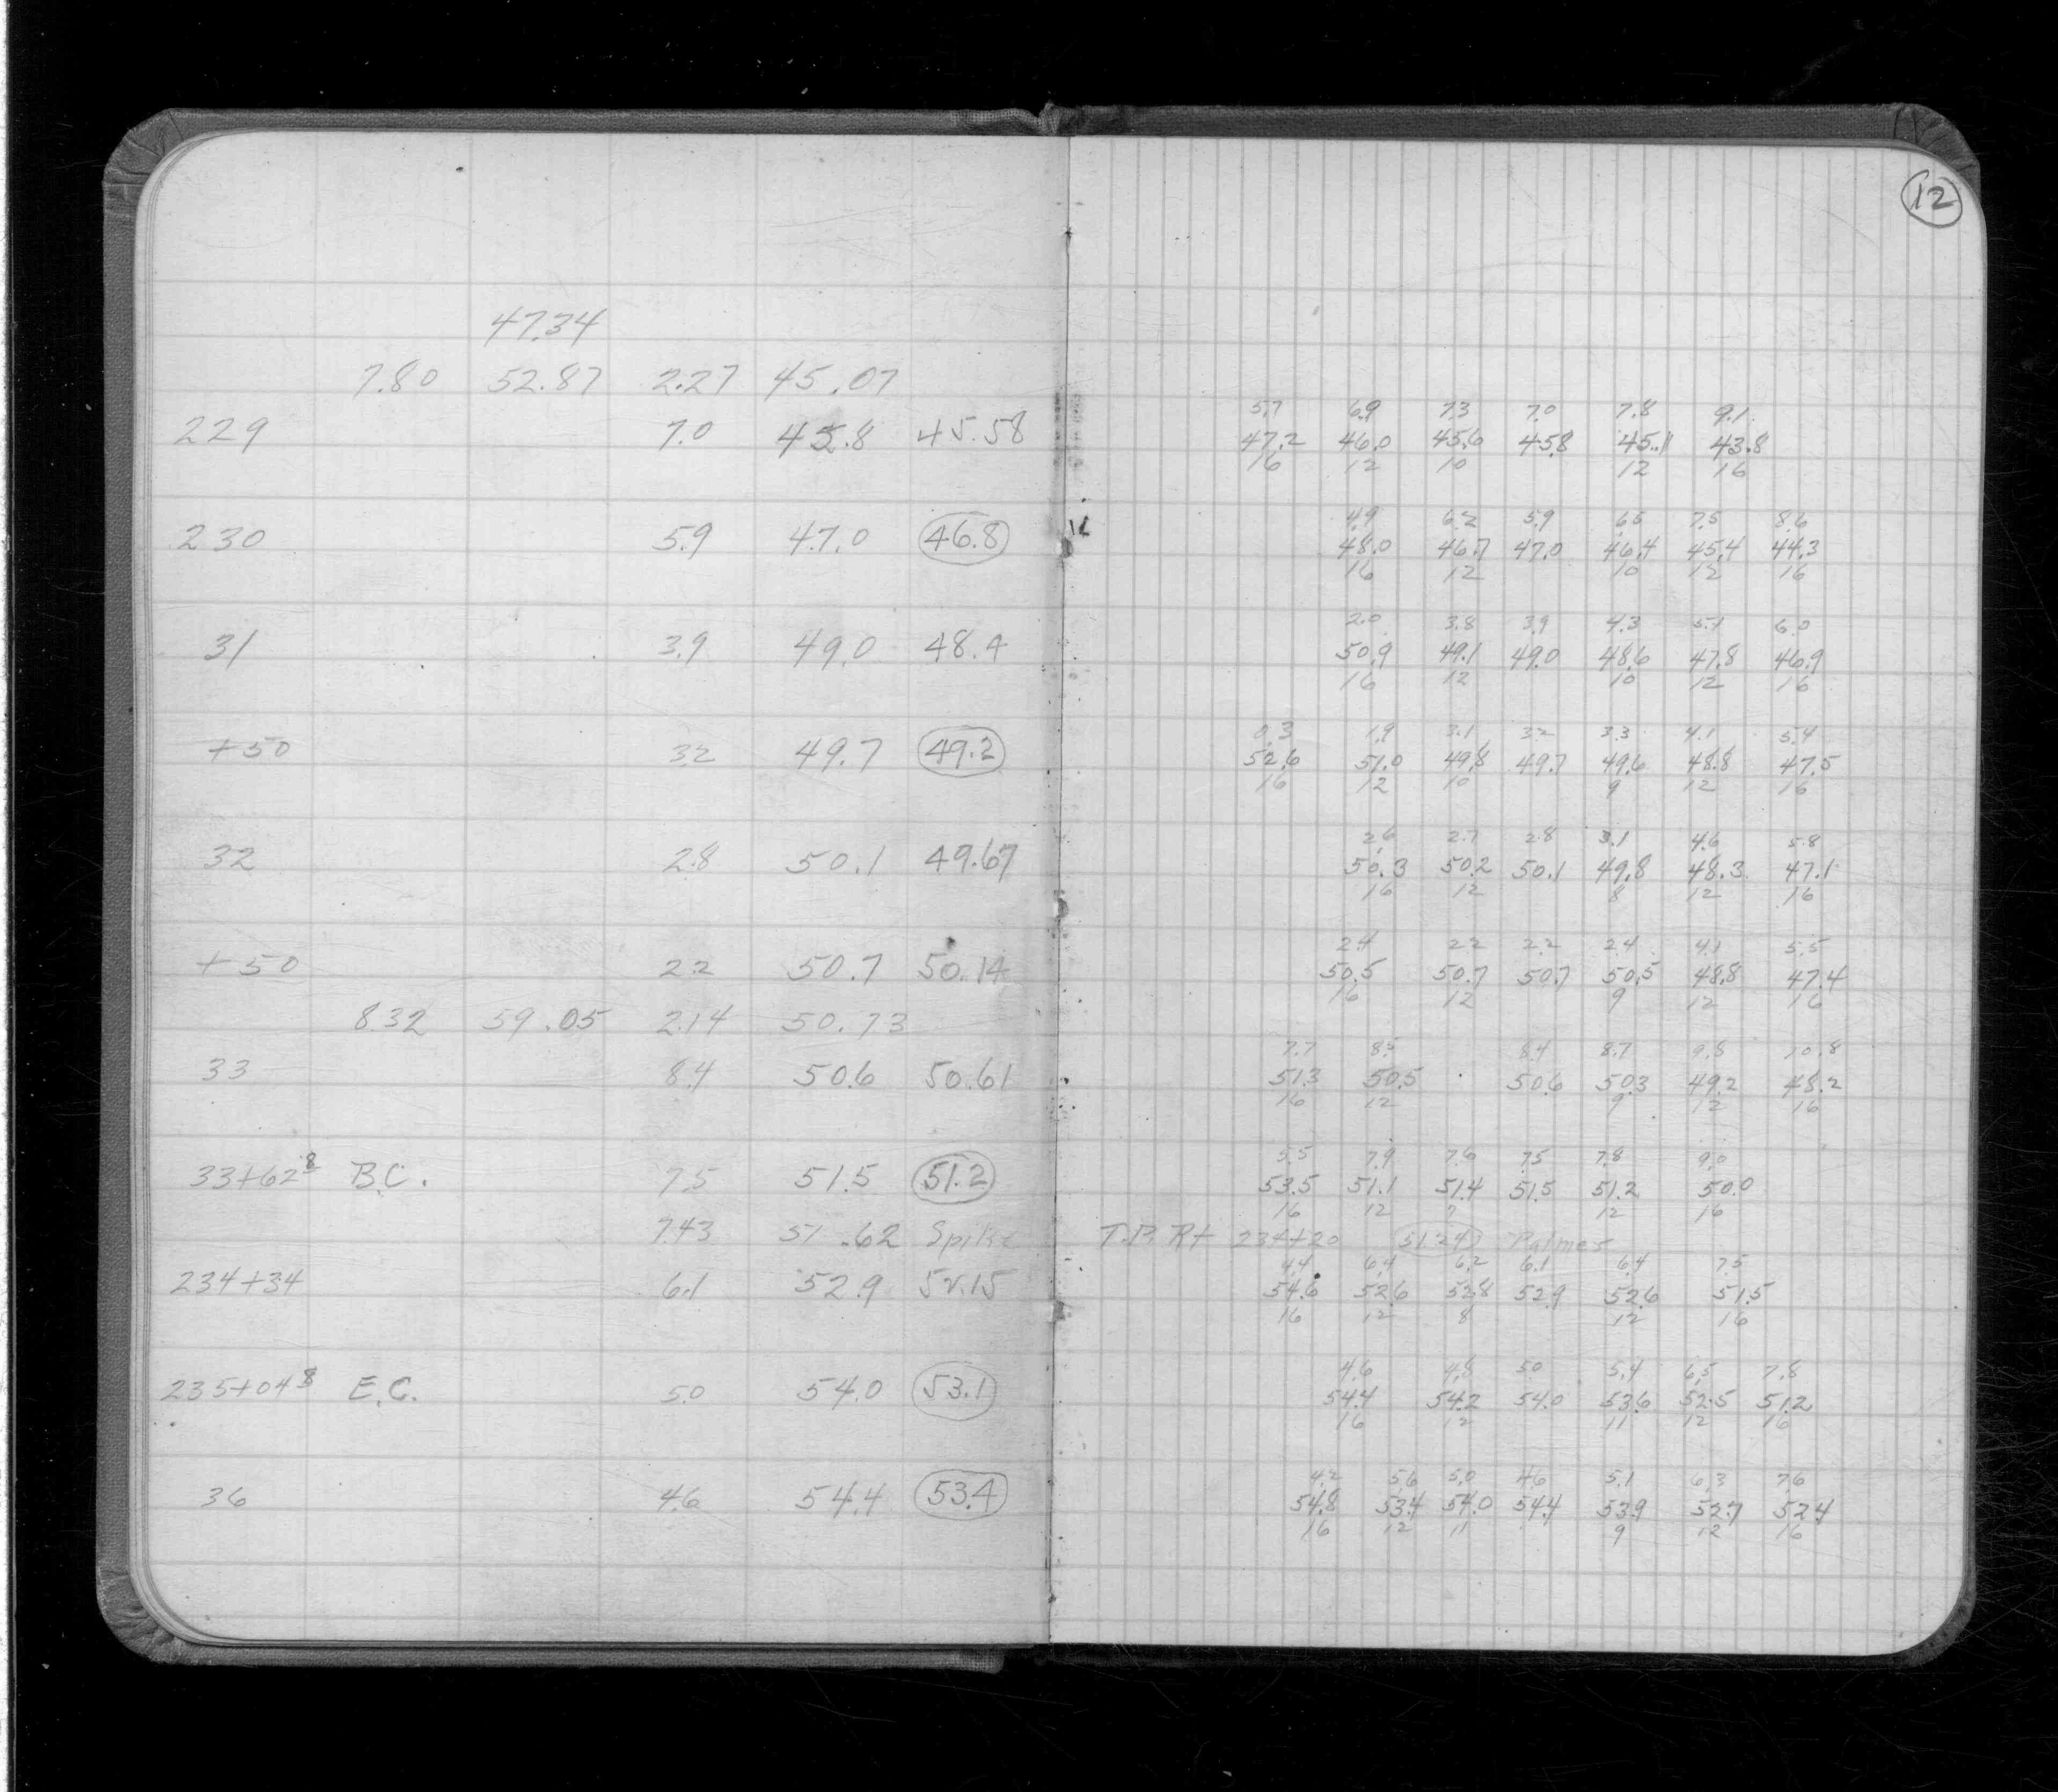 12
47.34
7.80 52.87 2.27 45.07
5.7 6.9 7.3 7.0 7.8 9.1
229 7.0 45.8 45.58 47.2 46.0 45.6 45.8 45.1 43.8
16 12 10 12 16
4.9 6.2 5.9 6.5 7.5 8.6
230 5.9 47.0 46.8 48.0 46.7 47.0 46.4 45.4 44.3
16 12 10 12 16
2.0 3.8 3.9 4.3 5.1 6.0
31 3.9 49.0 48.4 50.9 49.1 49.0 48.6 47.8 46.9
16 12 10 12 16
0.3 1.9 3.1 3.2 3.3 4.1 5.4
+50 3.2 49.7 49.2 52.6 51.0 49.8 49.7 49.6 48.8 47.5
16 12 10 9 12 16
2.6 2.7 2.8 3.1 4.6 5.8
32 2.8 50.1 49.67 50.3 50.2 50.1 49.8 48.3 47.1
16 12 8 12 16
2.4 2.2 2.2 2.4 4.1 5.5
+50 2.2 50.7 50.14 50.5 50.7 50.7 50.5 48.8 47.4
16 12 9 12 16
8.32 59.05 2.14 50.73
7.7 8.5 8.4 8.7 9.8 10.8
33 8.4 50.6 50.61 51.3 50.5 50.6 50.3 49.2 48.2
16 12 9 12 16
5.5 7.9 7.6 7.5 7.8 9.0
33+62 8 B.C. 7.5 51.5 51.2 53.5 51.1 51.4 51.5 51.2 50.0
16 12 7 12 16
7.43 51.62 Spike T.P. Rt 234+20 51.24 Palmer
4.4 6.4 6.2 6.1 6.4 7.5
234+34 6.1 52.9 52.15 54.6 52.6 52.8 52.9 52.6 51.5
16 12 8 12 16
4.6 4.8 5.0 5.4 6.5 7.8
235+04 8 E.C. 5.0 54.0 53.1 54.4 54.2 54.0 53.6 52.5 51.2
16 12 11 12 16
4.2 5.6 5.0 4.6 5.1 6.3 7.6
36 4.6 54.4 53.4 54.8 53.4 54.0 54.4 53.9 52.7 52.4
16 12 11 9 12 16